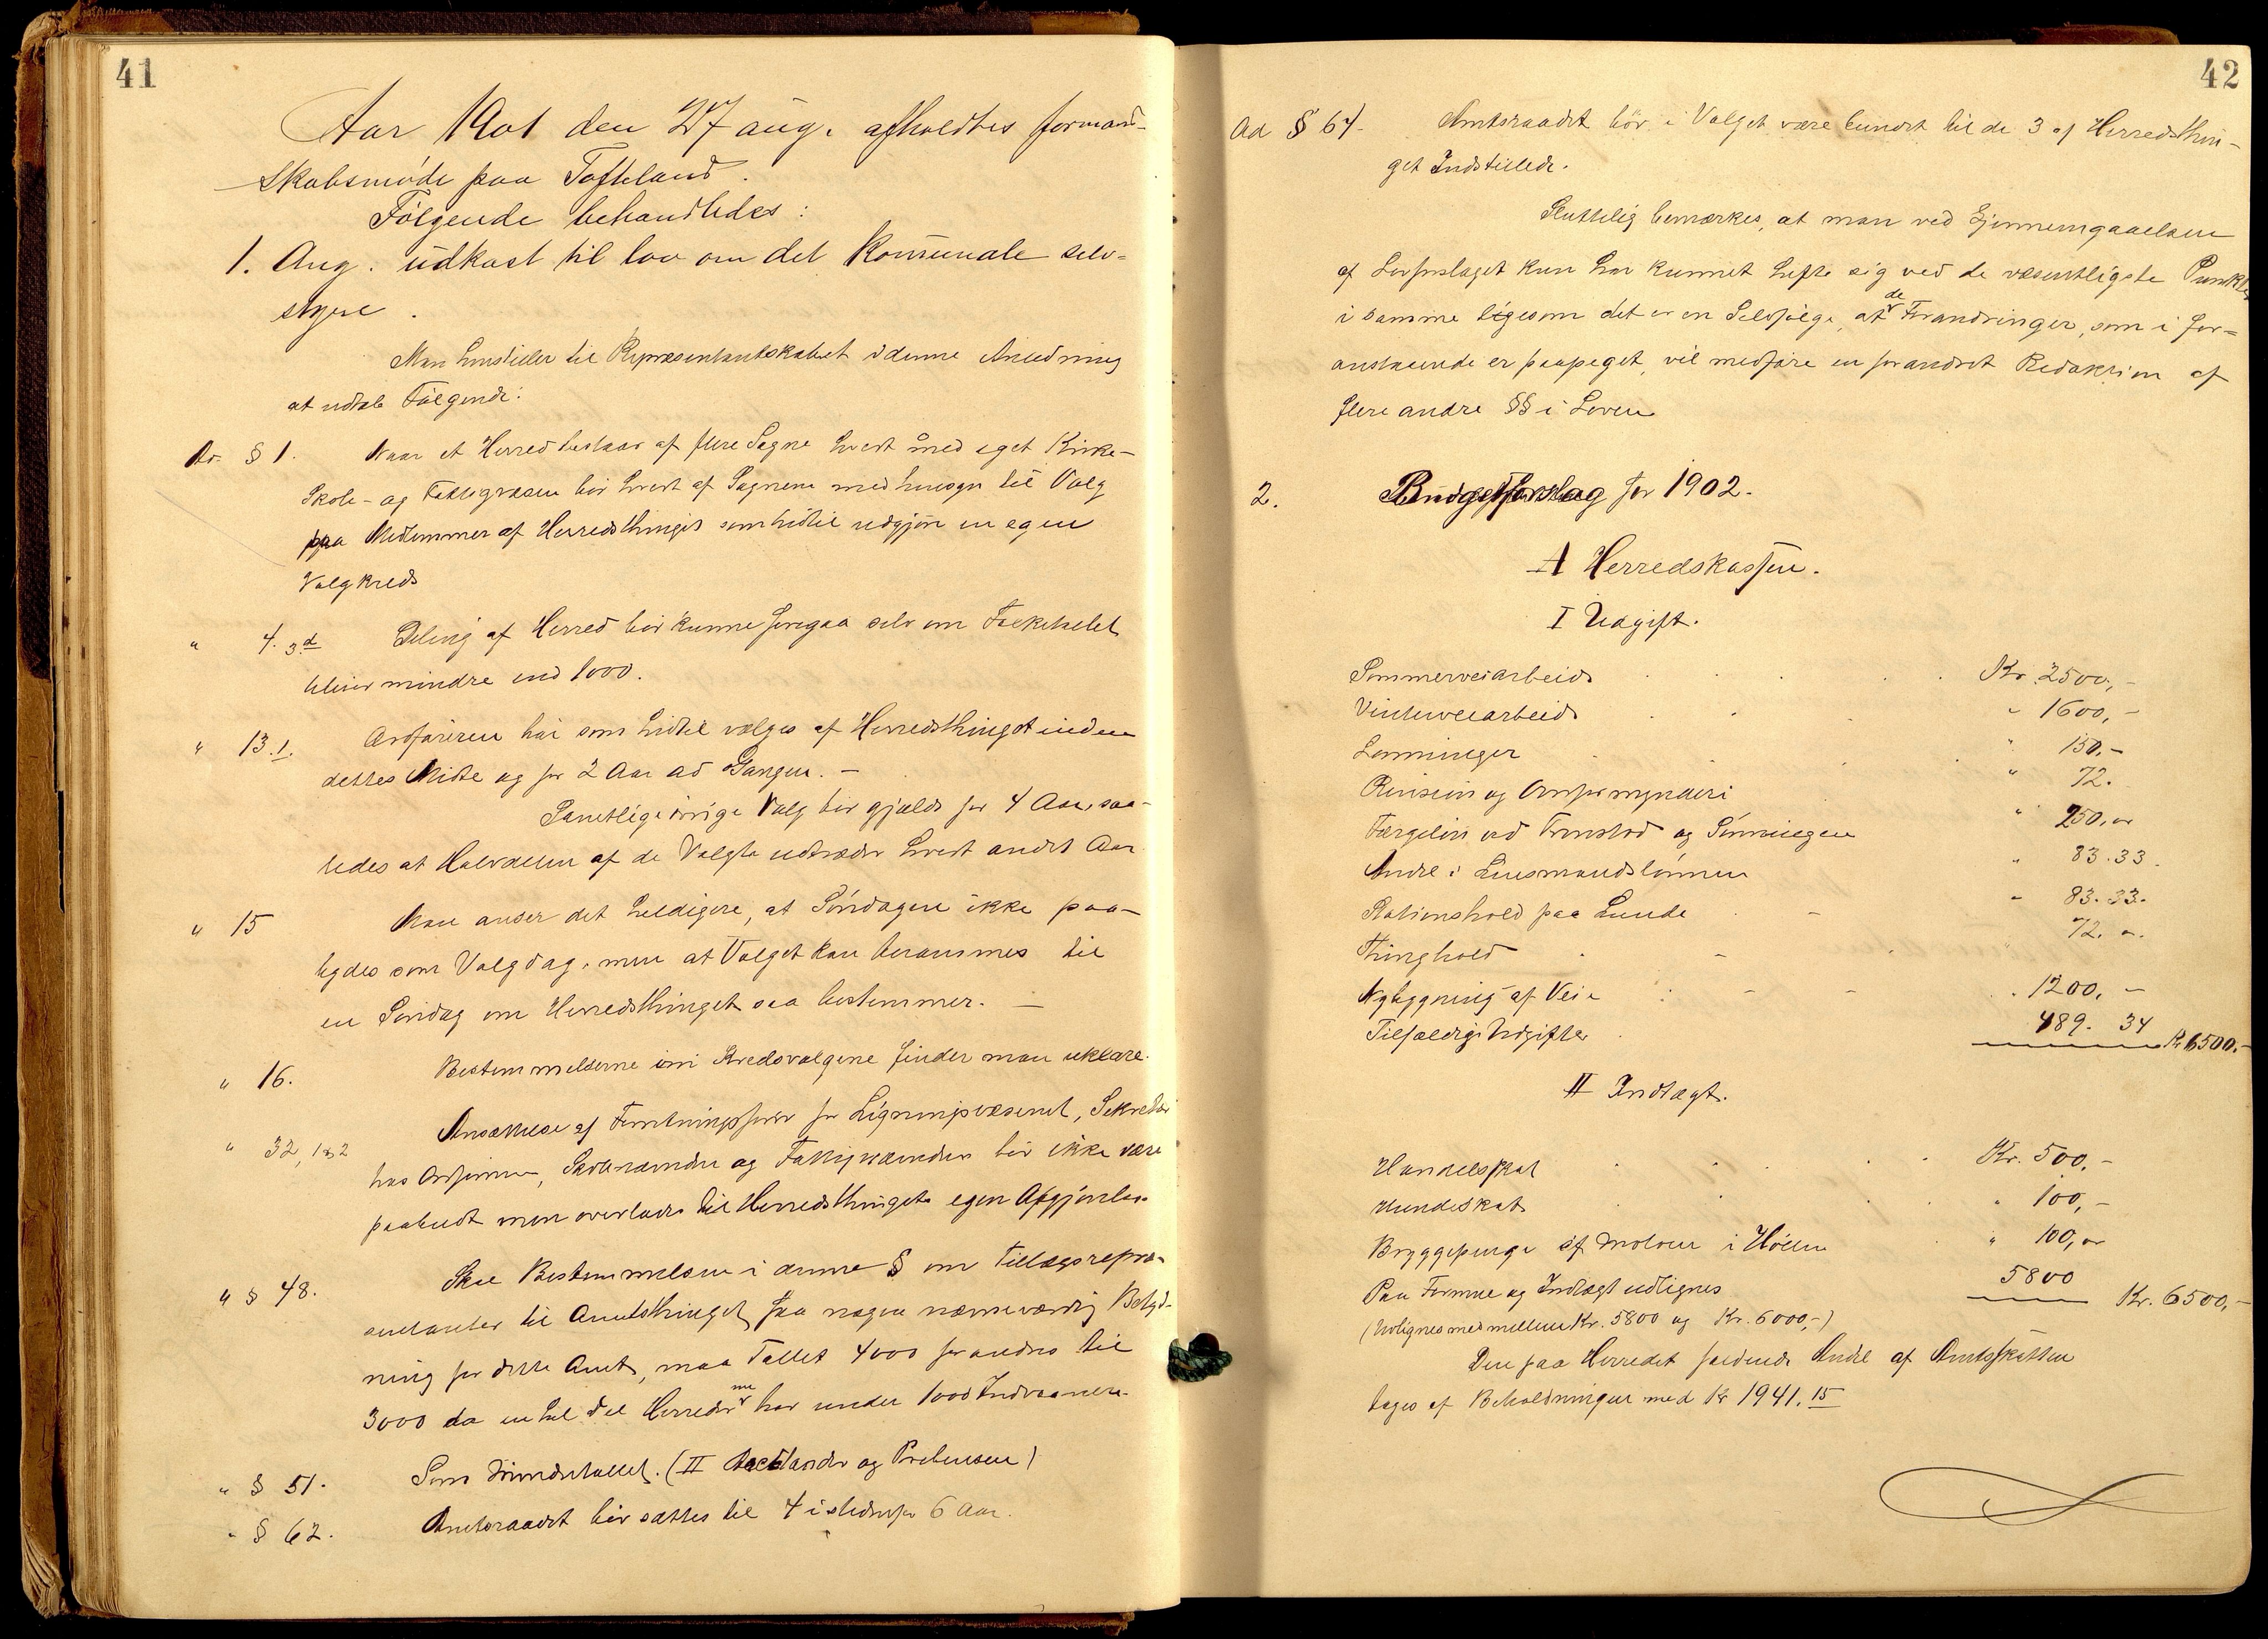 41
Aar 1901 den 27 aug. afholdtes formand-
skabsmøde paa Tofteland.
Følgende behandledes:
1. Ang. udkast til lov om det Komunale selv-
styre.
Man henstiller til Repræsentantskabet i denne Anledning
at udtale Følgende:
Ad § 1. Naar et Herred bestaar af flere Sogne hvert med eget Kirke-
Skole- og Fattigvæsen bør hvert af Sognene med hensyn til Valg
paa Medlemmer af Herredsthinget som hidtil udgjøre en egen
Valgkreds
" 4. 3d Deling af Herred bør kunne foregaa selv om Folketallet
bliver mindre end 1000.
" 13.1. Ordføreren bør som hidtil vælges af Herredsthinget inden
dettes Midte og for 2 Aar ad Gangen. -
Samtlige øvrige Valg bør gjælde for 4 Aar, saa-
ledes at Halvdelen af de Valgte udtræder hvert andet Aar
" 15 Man anser det heldigere, at Søndagen ikke paa-
bydes som Valgdag, men at Valget kan berammes til
en Søndag om Herredsthinget saa bestemmer. -
" 16. Bestemmelserne om Kredsvalgene finder man uklare.
" 32, 1 & 2 Ansættelse af Forretningsfører for Ligningsvæsenet, Sekretær
hos Ordføreren, Skolestyret og Fattigvæsenet bør ikke være
paabudt men overlades til Herredsthingets egen Afgjørelse.
" § 48. Skal Bestemmelsen i denne § om Tillægsrepræ-
sentanter til Amtsthinget faa nogen nævneværdig Betyd-
ning for dette Amt, maa Tallet 4000 forandres til
3000 da en hel Del Herreder ne har under 1000 Indvaanere.
" § 51. Som Mindretallet. (II Aaellander og Prebensen)
" § 62. Amtsraadet bør sættes til 4 istedenfor 6 Aar.
42
Ad § 64. Amtsraadet bør i Valget være bundet til de 3 af Herredsthin-
get Indstillede.
Sluttelig bemærkes, at man ved Gjennemgaaelsen
af Lovforslaget kun har kunnet hefte sig ved de væsentligste Punkter
i samme ligesom det er en Selvfølge, at de Forandringer, som i for-
anstaaende er paapeget, vil medføre en forandret Redaktion af
flere andre §§ i Loven
2. Budgetforslag for 1902.
A Herredskassen.
I Udgift.
Sommerveiarbeide Kr. 2500,-
Vinterveiarbeide " 1600,-
Lønninger " 150,-
Revision og Overformynderi " 72.
Færgeløn ved Tronstad og Sønningen " 250,00
Andel i Lensmandslønnen " 83.33.
Stationshold paa Lunde " 83.33.
Thinghold " 72. -
Nybygning af Veie " 1200,-
Tilfældige Udgifter 489. 34 Kr 6500.-
II Indtægt.
Handelsskat Kr. 500,-
Hundeskat " 100,-
Bryggepenge af Moloen i Høllen " 100,00
Paa Formue og Indtægt udlignes 5800 Kr. 6500,-
(Udlignes med mellem Kr. 5800 og Kr. 6000,-)
Den paa Herredet faldende Andel af Amtsskatten
tages af Beholdningen med Kr 1941.15